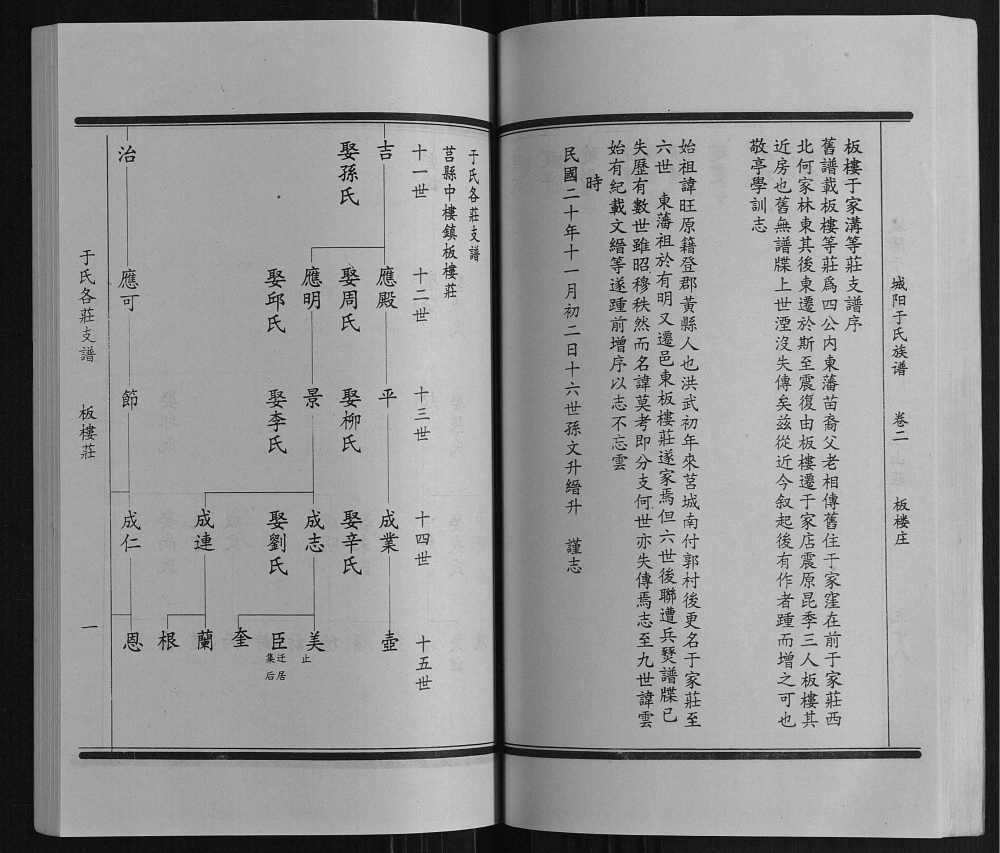 城阳于氏族谱 卷二 板楼庄
板樓于家溝等莊支譜序
舊譜載板樓等莊爲四公内東藩苗裔父老相傳舊住于家窪在前于家莊西
北何家林東其後東遷於斯至震復由板樓遷于家店震原昆季三人板樓其
近房也舊無譜牒上世湮沒失傳矣兹從近今叙起後有作者踵而增之可也
敬亭學訓志
始祖諱旺原籍登郡黄縣人也洪武初年來莒城南付郭村後更名于家莊至
六世 東藩祖於有明又遷邑東板樓莊遂家焉但六世後聯遭兵燹譜牒已
失歷有數世雖昭穆秩然而名諱莫考即分支何世亦失傳焉志至九世諱雲
始有紀載文縉等遂踵前增序以志不忘雲
時
民國二十年十一月初二日十六世孫文升縉升 謹志
于氏各莊支譜
莒縣中樓鎮板樓莊
十一世 十二世 十三世 十四世 十五世
吉 應殿 平 成業 壺
娶孫氏 娶周氏 娶柳氏 娶辛氏
應明 景 成志 美 止
娶邱氏 娶李氏 娶劉氏 臣 迁居集后
奎
成連 蘭
根
治 應可 節 成仁 恩
于氏各莊支譜 板樓莊 一